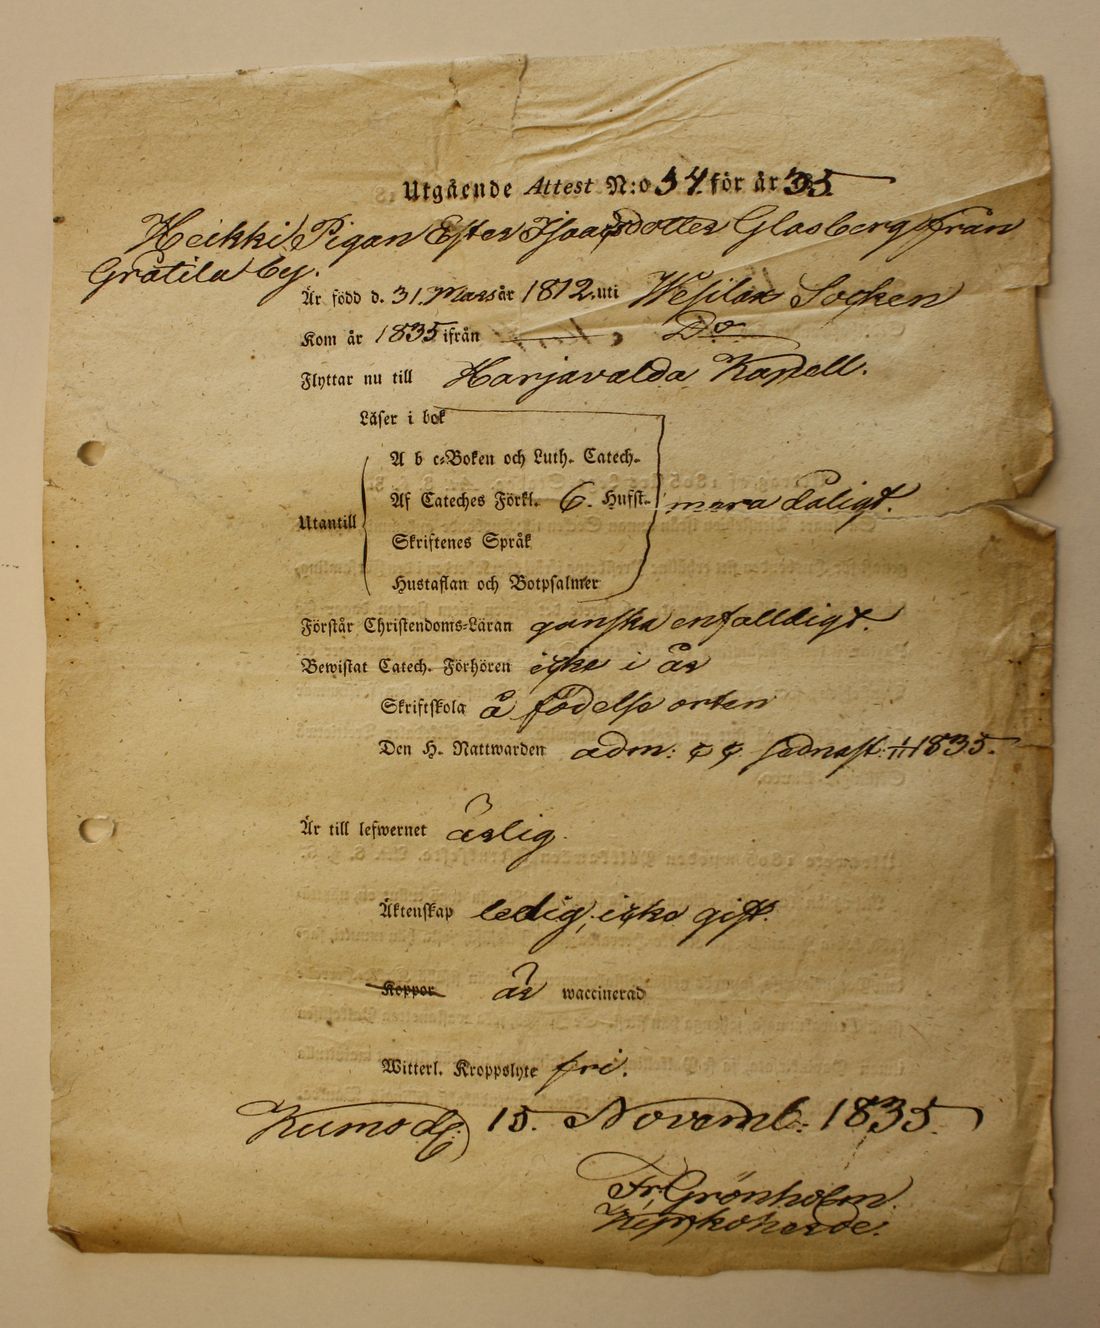 Utgående Attest N:o 54 för år 35.
Heikki/Pigan Ester Isaacsdotter Glasberg från
Gråtila by.
Är född d. 31. Mars år 1812. uti Wesilax Socken
Kom år 1835 ifrån Do
Flyttar nu till Harjavalda Kapell.
Läser i bok
A b c-Boken och Luth. Catech.
Af Cateches Förkl. 6. Hufst. mera dåligt.
Utantill
Skriftenes Språk
Hustaflan och Botpsalmer
Förstår Christendoms-Läran ganska enfalldigt.
Bewistat Catech. Förhören icke i år
Skriftskola å födelse orten
Den H. Nattwarden adm: sednast 1835.
Är till lefwernet ärlig.
Äktenskap ledig, icke gift.
Koppor är waccinerad
Witterl. Kroppslyte fri.
Kumo d. 15. Novemb. 1835.
Fr. Grönholm.
Kyrkoherde.